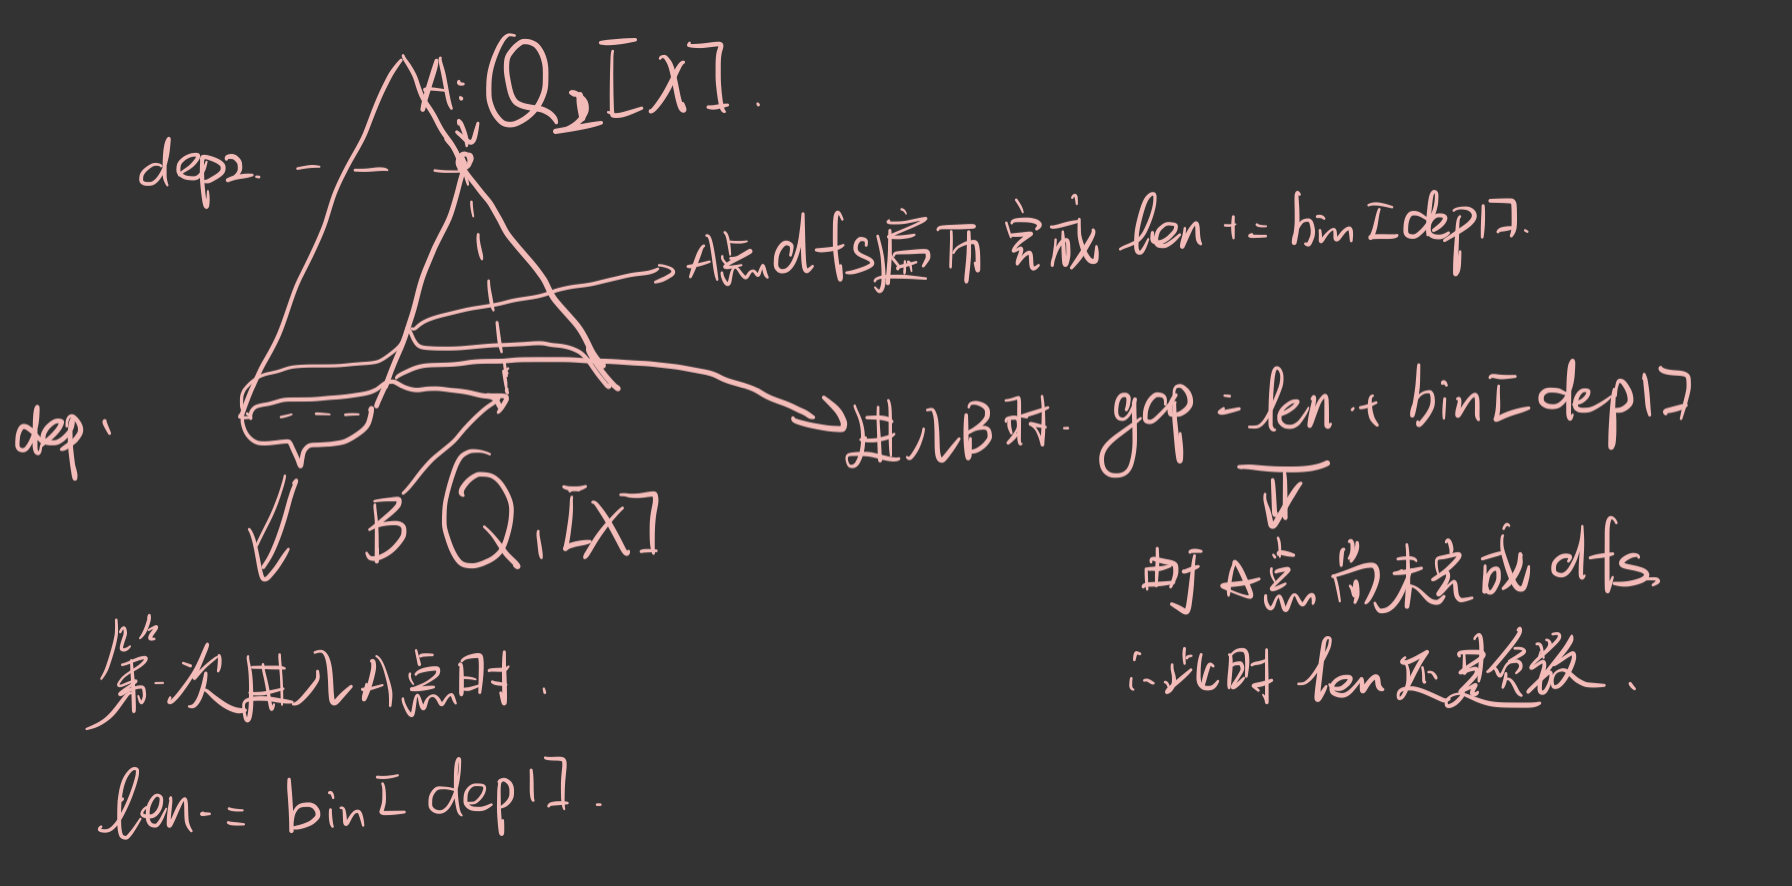 A: Q₂[X].
dep2.
A点dfs遍历完成 len += bin[dep1].
dep1
进入B时. gap = len + bin[dep1]
B Q₁[X]
由于A点尚未完成dfs.
∴此时len还是负数.
第一次进入A点时.
len -= bin[dep1].